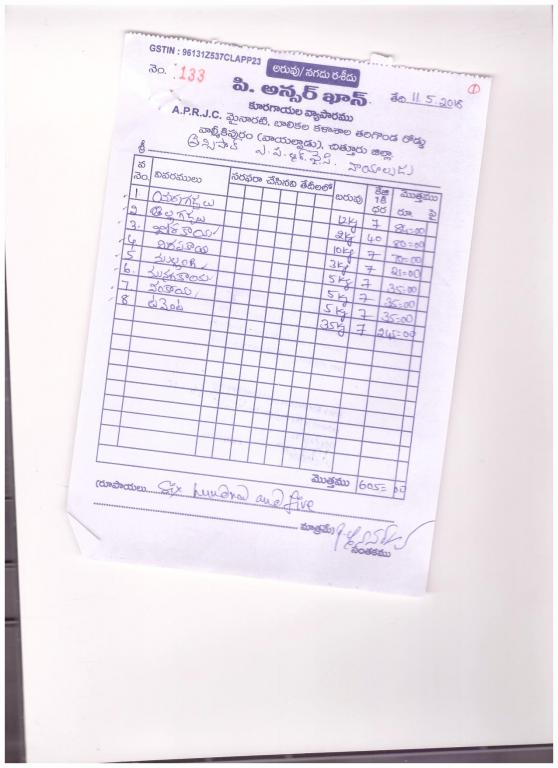 GSTIN : 96131Z537CLAPP23
అరువు/నగదు రశీదు
నెం. 133
పి. అన్సర్ ఖాన్.
తేది 11.5.2018
కూరగాయల వ్యాపారము
A.P.R.J.C. మైనారటి, బాలికల కళాశాల తరిగొండ రోడ్డు
వాల్మీకిపురం (వాయల్పాడు), చిత్తూరు జిల్లా.
శ్రీ ప్రిన్సిపాల్ ఎ.ప.ఆర్.జె.సి. వాయల్పాడు
వ నెం. వివరములు సరఫరా చేసినవి తేదీలలో బరువు కేజి 1కి ధర మొత్తము రూ. పై
1 యర్రగడ్డలు 12kg 7 84=00
2 తెల్లగడ్డలు 2kg 40 80=00
3. 10kg 7 70=00
4. 3kg 7 21=00
5 ముల్లంగి 5kg 7 35=00
6. మునక్కాయ 5kg 7 35=00
7. వంకాయ 5kg 7 35=00
8. టమోట 35kg 7 245=00
మొత్తము 605=00
(రూపాయలు Six hundred and five
మాత్రమే)
సంతకము